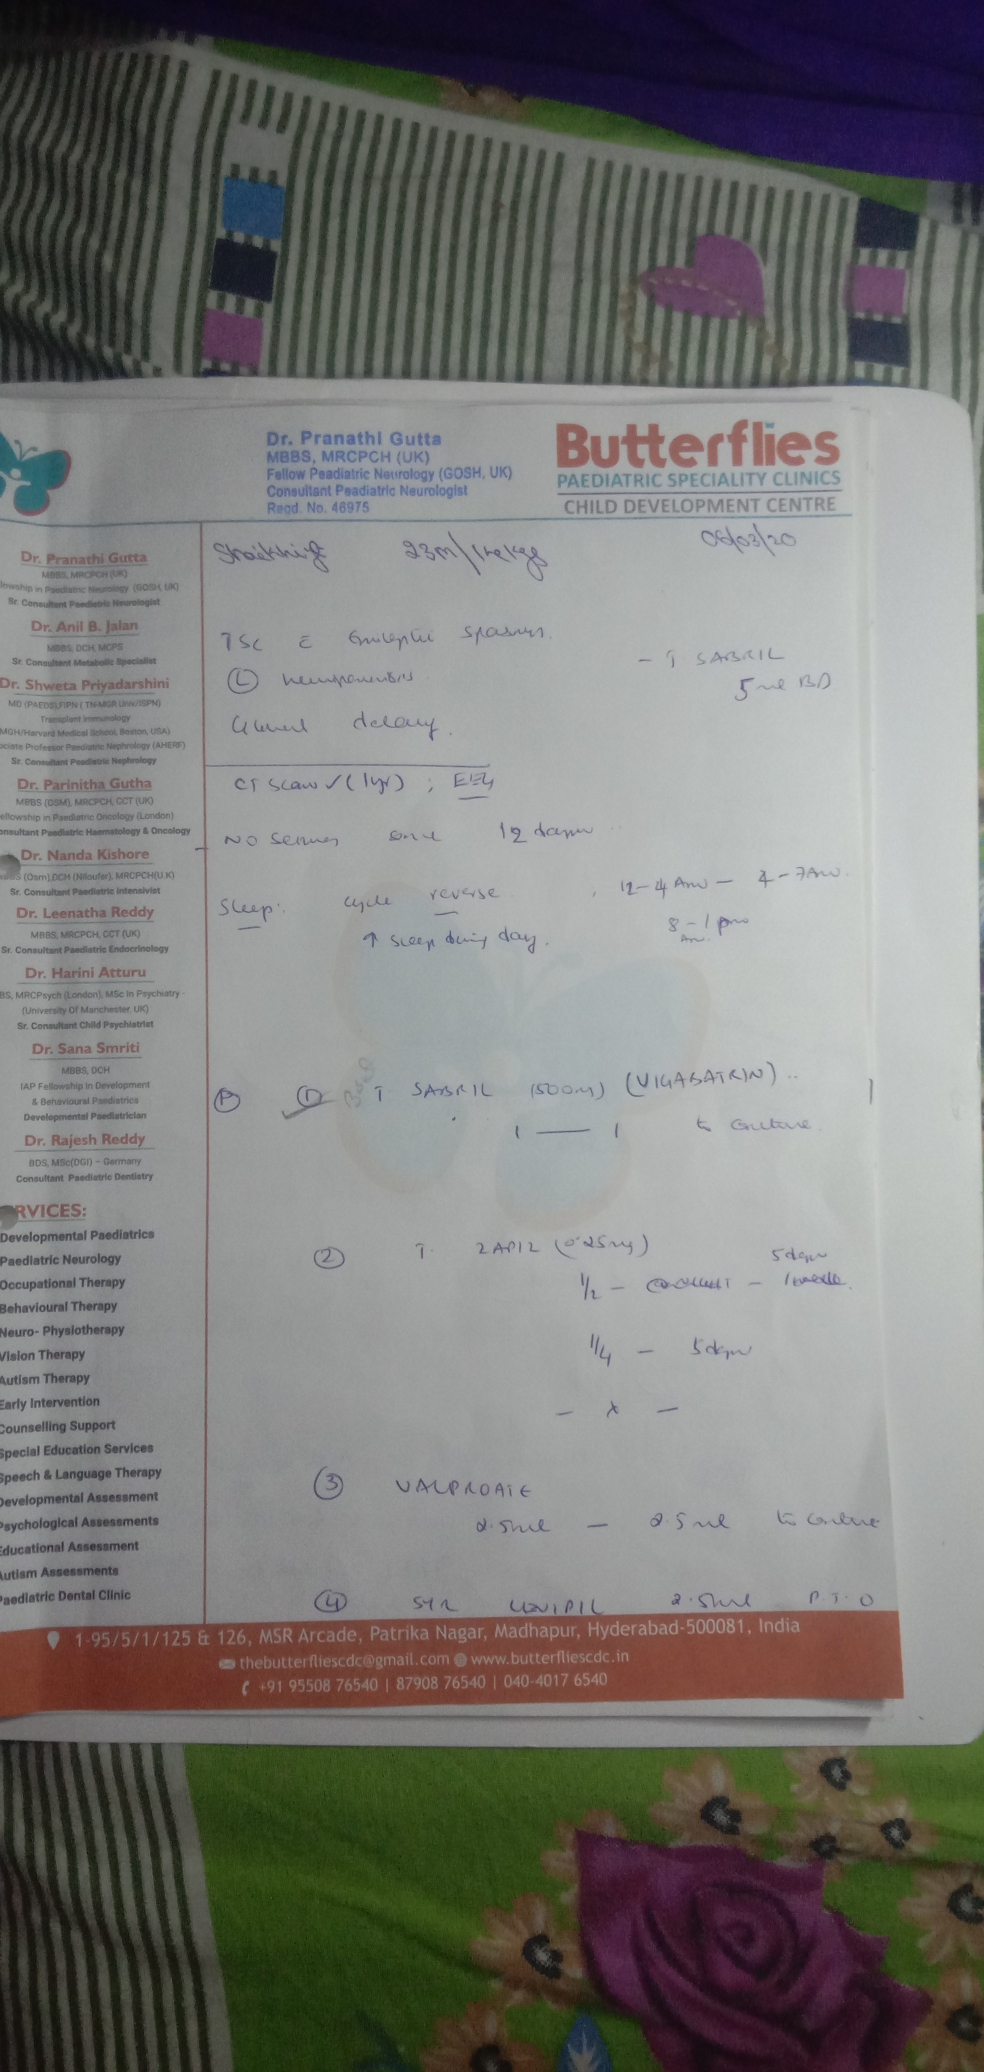 Dr. Pranathi Gutta
MBBS, MRCPCH (UK)
Fellow Peadiatric Neurology (GOSH, UK)
Consultant Peadiatric Neurologist
Regd. No. 46975
Butterflies
PAEDIATRIC SPECIALITY CLINICS
CHILD DEVELOPMENT CENTRE
23m/
/03/20
TSC c spasms.
- T SABRIL
5 ml BD
(L)
delay.
CT Scan ✓ (1yr) ; EEG
NO since 12 days
Sleep: cycle reverse. 12-4 Am - 4-7Am.
↑ sleep during day. 8-1 pm
Am.
① T SABRIL (500mg) (VIGABATRIN)..
1 — 1 to continue.
② T. ZAPIZ (0.25mg)
5days
1/2 - -
1/4 - 5days
- x -
③ VALPROATE
2.5ml - 2.5ml to continue
④ SYR 2.5ml P.T.O
Dr. Pranathi Gutta
MBBS, MRCPCH (UK)
lowship in Paediatric Neurology (GOSH, UK)
Sr. Consultant Paediatric Neurologist
Dr. Anil B. Jalan
MBBS, DCH, MCPS
Sr. Consultant Metabolic Specialist
Dr. Shweta Priyadarshini
MD (PAEDS),FIPN ( TN-MGR Univ/ISPN)
Transplant Immunology
MGH/Harvard Medical School, Boston, USA)
ociate Professor Paediatric Nephrology (AHERF)
Sr. Consultant Paediatric Nephrology
Dr. Parinitha Gutha
MBBS (OSM), MRCPCH, CCT (UK)
ellowship in Paediatric Oncology (London)
onsultant Paediatric Haematology & Oncology
Dr. Nanda Kishore
BS (Osm),DCH (Niloufer), MRCPCH(U.K)
Sr. Consultant Paediatric Intensivist
Dr. Leenatha Reddy
MBBS, MRCPCH, CCT (UK)
Sr. Consultant Paediatric Endocrinology
Dr. Harini Atturu
BS, MRCPsych (London), MSc in Psychiatry -
(University Of Manchester, UK)
Sr. Consultant Child Psychiatrist
Dr. Sana Smriti
MBBS, DCH
IAP Fellowship In Development
& Behavioural Paediatrics
Developmental Paediatrician
Dr. Rajesh Reddy
BDS, MSc(DGI) – Germany
Consultant Paediatric Dentistry
RVICES:
Developmental Paediatrics
Paediatric Neurology
Occupational Therapy
Behavioural Therapy
Neuro- Physiotherapy
Vision Therapy
Autism Therapy
Early Intervention
Counselling Support
Special Education Services
Speech & Language Therapy
Developmental Assessment
Psychological Assessments
Educational Assessment
Autism Assessments
Paediatric Dental Clinic
1-95/5/1/125 & 126, MSR Arcade, Patrika Nagar, Madhapur, Hyderabad-500081, India
thebutterfliescdc@gmail.com www.butterfliescdc.in
+91 95508 76540 | 87908 76540 | 040-4017 6540